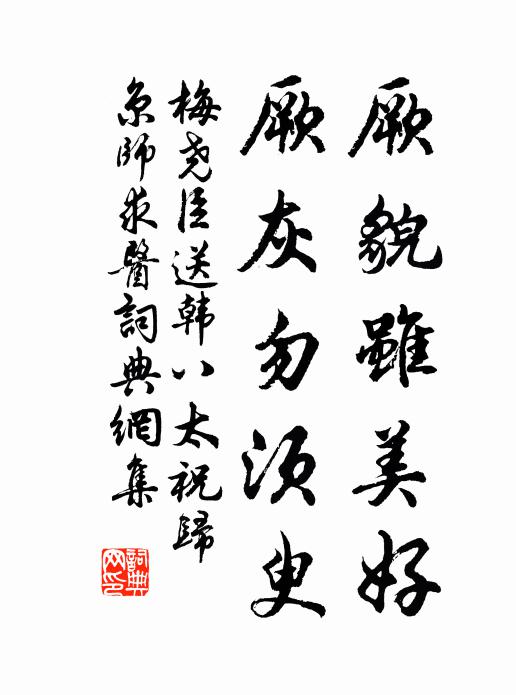 厥貌雖美好
厥灰勿須臾
梅堯臣送韩八太祝歸
京師求醫詞典網集
詞典
网印